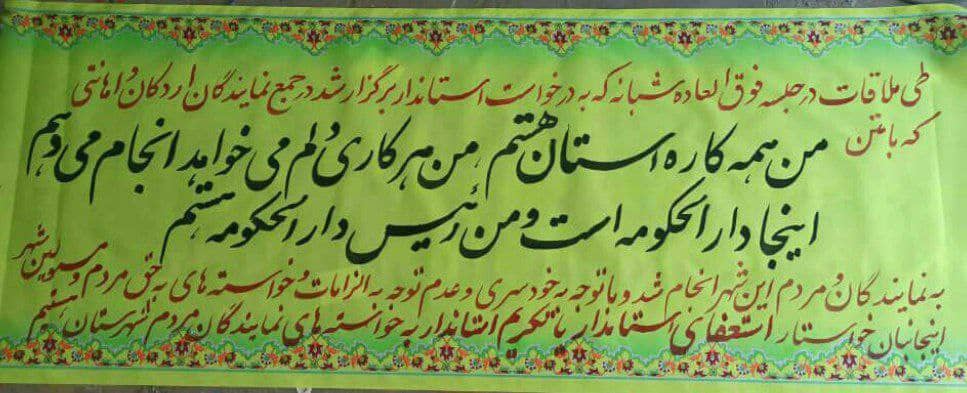 طی ملاقات در جلسه فوق العاده شبانه که به درخواست استاندار برگزار شد در جمع نمایندگان اردکان و اهانتی
که با متن
من همه کاره استان هستم ، من هر کاری دلم می خواهد انجام می دهم
اینجا دارالحکومه است و من رئیس دارالحکومه هستم
به نمایندگان و مردم این شهر انجام شد و با توجه به خودسری و عدم توجه به الزامات و خواسته های به حق مردم و مسولین شهر
اینجانبان خواستار استعفای استاندار یا تکریم استاندار به خواسته های نمایندگان مردم شهرستان هستیم